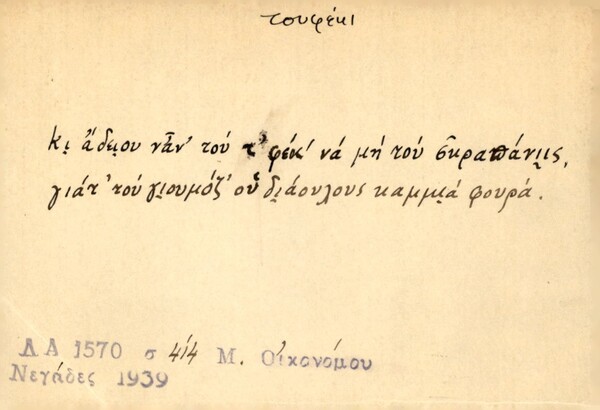 τουφέκι
κι̯ ἄδει̯ου νἆν' τοὺ τ' φέκ' νὰ μὴ τοὺ σ̑κραπάνι̯ις,
γιάτ' τοὺ γι̯ουμόζ' οὑ δι̯άουλους καμμι̯ιὰ φουρά.
ΛΑ 1570 σ 414 Μ. Οἰκονόμου
Νεγάδες 1939